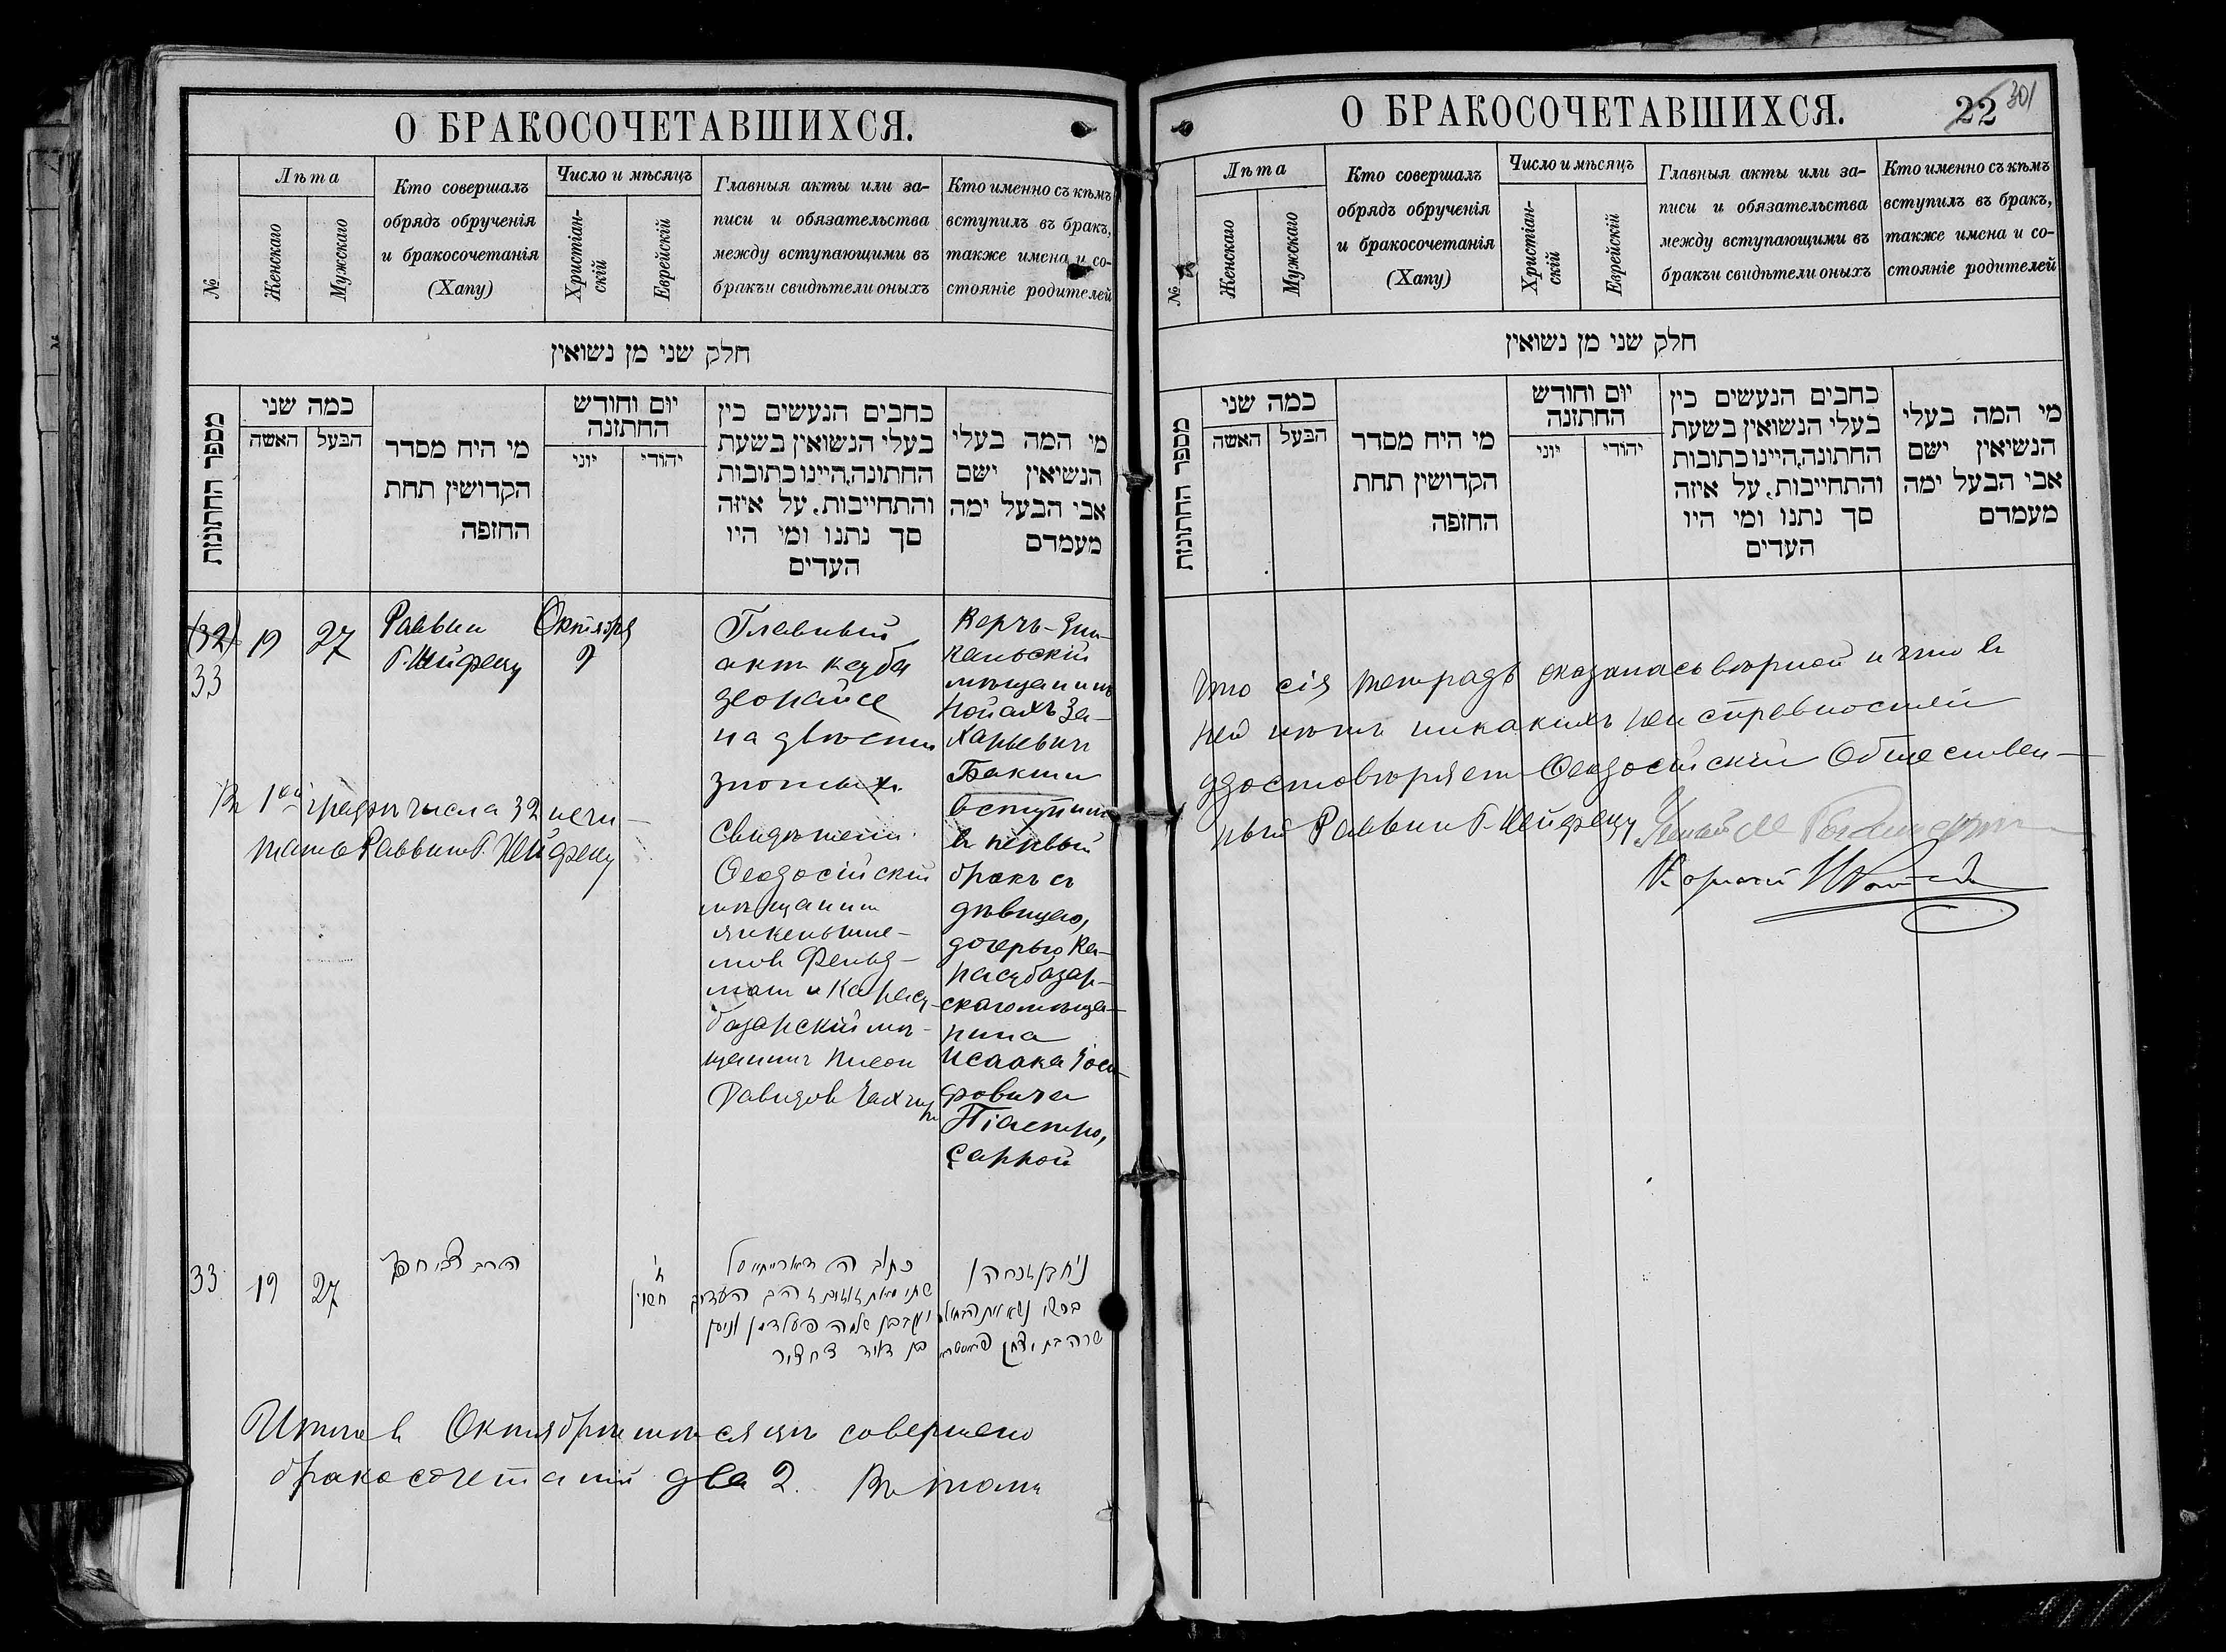 О БРАКОСОЧЕТАВШИХСЯ.
№
Лѣта
Женскаго
Мужскаго
Кто совершалъ
обрядъ обрученія
и бракосочетанія
(Хапу)
Число и мѣсяцъ
Христіан-
скій
Еврейскій
Главныя акты или за-
писи и обязательства
между вступающими въ
бракъи свидѣтели оныхъ
Кто именно съ кѣмъ
вступилъ въ бракъ,
также имена и со-
стояніе родителей
חלק שני מן נשואין
מספר החתונות
כמה שני
האשה
הבעל
מי היח מסדר
הקדושין תחת
החזפה
יום וחודש
החתונה
יוני
יהודי
כחבים הנעשים כין
בעלי הנשואין בשעת
החתונה,היינו כתובות
והתחייבות. על איזה
סך נתנו ומי היו
העדים
מי המה בעלי
הנשיאין ישם
אבי הבעל ימה
מעמדם
(32)
33
19
27
Раввин
Г. Хейфецъ
Октября
Главный
акт кетуба
деорайсе
на двѣсти
злотыхъ.
Свидѣтели:
Ѳеодосійскій
мѣщанин
Фельд-
ман и Карасу-
базарскій мѣ-
щанинъ
Давидов
Керчь-Ени-
кальскій
мѣщанинъ
Нойахъ За-
харьевич
Бакши
вступил
в первый
бракъ съ
дѣвицею,
дочерью Ка-
расубазар-
скаго мѣща-
нина
Исаака Іоси-
фовича
Піастро,
Саррой
Въ 1ой графѣ числа 32 нечи-
тать Раввинъ Г. Хейфецъ
33
19
27
הרב
ח'
חשון
כתובה דאורייתא
שתי מאות זהב העדים
יעקב בן שלמה פעלדמן
בן דוד
נח בן זכריה
בקשי נשא את הבתולה
שרה בת יצחק פיאסטרו
Итого в Октябрѣ мѣсяцѣ совершено
бракосочетаній два 2. Въ томъ
О БРАКОСОЧЕТАВШИХСЯ.
22
301
№
Лѣта
Женскаго
Мужскаго
Кто совершалъ
обрядъ обрученія
и бракосочетанія
(Хапу)
Число и мѣсяцъ
Христіан-
скій
Еврейскій
Главныя акты или за-
писи и обязательства
между вступающими въ
бракъи свидѣтели оныхъ
Кто именно съ кѣмъ
вступилъ въ бракъ,
также имена и со-
стояніе родителей
חלק שני מן נשואין
מספר החתונות
כמה שני
האשה
הבעל
מי היח מסדר
הקדושין תחת
החזפה
יום וחודש
החתונה
יוני
יהודי
כחבים הנעשים כין
בעלי הנשואין בשעת
החתונה,היינו כתובות
והתחייבות. על איזה
סך נתנו ומי היו
העדים
מי המה בעלי
הנשיאין ישם
אבי הבעל ימה
מעמדם
что сія тетрадь оказалась вѣрной и что въ
ней нѣтъ никакихъ неисправностей
удостовѣряетъ Ѳеодосійскій Обществен-
ный Раввин Г. Хейфецъ